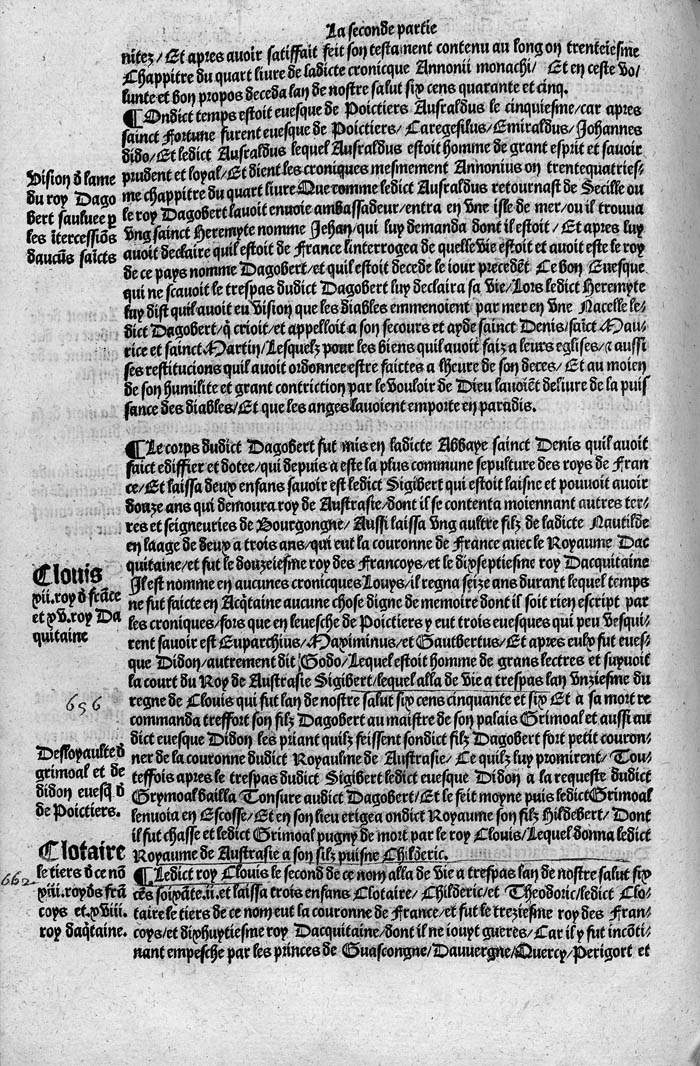 La seconde partie
nitez/ Et apres avoir satiffait feit son testament contenu au long on trenteiesme
Chappitre du quart livre de ladicte cronicque Annonii monachi/ Et en ceste vo/
lunte et bon propos deceda lan de nostre salut six cens quarante et cinq.
¶Ondict temps estoit evesque de Poictiers Ausraldus le cinquiesme/car apres
sainct Fortune furent evesque de Poictiers/ Caregesilus/ Emiraldus/ Johannes
dido/ Et ledict Ausraldus lequel Ausraldus estoit homme de grant esprit et savoir
prudent et loyal/ Et dient les croniques mesmement Annonius on trentequatries-
me chappitre du quart livre Que comme ledict Ausraldus retournast de Secille ou
le roy Dagobert lavoit envoie ambassadeur/entra en vne isle de mer/ou il trouva
vng sainct Heremyte nomme Jehan/qui luy demanda dont il estoit/ Et apres luy
avoit declaire quil estoit de France linterrogea de quelle vie estoit et avoit este le roy
de ce pays nomme Dagobert/et quil estoit decede le iour precedēt Ce bon Evesque
qui ne scavoit le trespas dudict Dagobert luy declaira sa vie/ Lors ledict Heremyte
luy dist quil avoit eu vision que les diables emmenoient par mer en vne Nacelle le-
dict Dagobert/q̄ crioit/et appelloit a son secours et ayde sainct Denis/saīct Mau-
rice et sainct Martin/Lesquelz pour les biens quil avoit faiz a leurs eglises/⁊ aussi
ses restitucions quil avoit ordonnee estre faictes a lheure de son deces/ Et au moien
de son humilite et grant contriction par le vouloir de Dieu lavoiēt delivre de la puis
sance des diables/Et que les anges lavoient emporte en paradis.
Vision d̄ lame
du roy Dago
bert sauluee ꝑ
les ītercessiōs
daucūs saīcts
¶Le corps dudict Dagobert fut mis en ladicte Abbaye sainct Denis quil avoit
faict ediffier et dotee/qui depuis a este la plus commune sepulture des roys de Fran
ce/Et laissa deux enfans savoir est ledict Sigibert qui estoit laisne et pouvoit avoir
douze ans qui demoura roy de Austrasie/dont il se contenta moiennant autres ter-
res et seigneuries de Bourgongne/ Aussi laissa vng aultre filz de ladicte Nautilde
en laage de deux a trois ans/qui eut la couronne de France avec le Royaume Dac
quitaine/et fut le douzeiesme roy des Francoys/et le dixseptiesme roy Dacquitaine
Il est nomme en aucunes cronicques Louys/il regna seize ans durant lequel temps
ne fut faicte en Acq̄taine aucune chose digne de memoire dont il soit rien escript par
les croniques/fors que en levesche de Poictiers y eut trois evesques qui peu vesqui-
rent savoir est Euparchius/Maximinus/et Gautbertus/ Et apres eulx fut eves-
que Didon/autrement dit Godo/Lequel estoit homme de grans lectres et suyvoit
la court du Roy de Austrasie Sigibert/lequel alla de vie a trespas lan vnziesme du
regne de Clouis qui fut lan de nostre salut six cens cinquante et six Et a sa mort re
commanda tresfort son filz Dagobert au maistre de son palais Grimoal et aussi au
dict evesque Didon les priant quilz feissent sondict filz Dagobert fort petit couron-
ner de la couronne dudict Royaulme de Austrasie/ Ce quilz luy promirent/ Tou-
teffois apres le trespas dudict Sigibert ledict evesque Didon a la requeste dudict
Grymoal bailla Tonsure audict Dagobert/Et le feit moyne puis ledict Grimoal
lenvoia en Escosse/ Et en son lieu erigea ondict Royaume son filz Hildebert/ Dont
il fut chasse et ledict Grimoal pugny de mort par le roy Clouis/Lequel donna ledict
Royaume de Austrasie a son filz puisne Childeric.
Clouis
xii.roy d̄ frāce
et xv.roy Da
quitaine
656
Desloyaulte d̄
grimoal et de
didon evesq̄ d̄
de Poictiers.
¶Ledict roy Clouis le second de ce nom alla de vie a trespas lan de nostre salut six
cēs soixante.ii.et laissa trois enfans Clotaire/ Childeric/et Theodoric/ledict Clo-
taire le tiers de ce nom eut la couronne de France/et fut le treziesme roy des Fran-
coys/et dixhuytiesme roy Dacquitaine/dont il ne iouyt gueres/ Car il y fut incōti-
nant empesche par les princes de Guascongne/Dauvergne/Quercy/Perigort et
Clotaire
le tiers d̄ ce nō
xiii.roy ds frā
coys et.xviii.
roy daq̄taine.
662